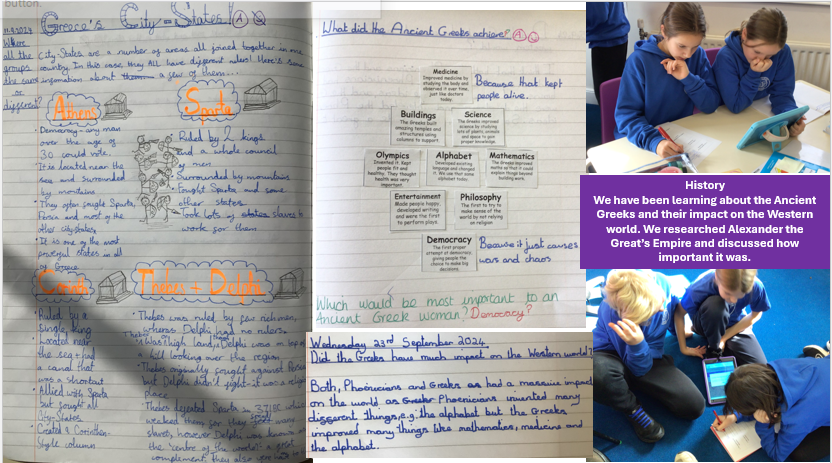 button.
Greece's City-States!
11.9.2024
Where all the groups the same or different?
City-States are a number of areas all joined together in one
country. In this case, they All have different rulers! Here's some
information about a few of them...
Athens
• Democracy - any man
over the age of
30 could vote.
• It is located near the
sea and surrounded
by mountains
• They often fought Sparta,
Persia and most of the
other city-states
• It is one of the most
powerful states in all
of Greece
Sparta
• Ruled by 2 kings
and a whole council
of men
• Surrounded by mountains
• Fought Sparta and some
other states
• Took lots of states slaves to
work for them
Corinth
• Ruled by a
single king
• Located near
the sea + had
a canal that
was a shortcut
• Allied with Sparta
but fought all
City-States
• Created a Corinthian
style column
Thebes + Delphi
• Thebes was ruled by few richmen,
whereas Delphi had no rulers
• Thebes was high land, Delphi was on top of
a hill looking over the region
• Thebes originally fought against Persia
but Delphi didn't fight - it was a religious
place
• Thebes defeated Sparta in 371BC which
weakend them for they freed many
slaves, however Delphi was known as
the 'centre of the world' - a great
complement they also were
What did the Ancient Greeks achieve?
Medicine
Improved medicine by
studying the body and
observed it over time,
just the doctors
today.
Because that kept
people alive.
Buildings
The Greeks built
amazing temples and
structures using
columns to support.
Science
The Greeks improved
science by studying
lots of plants, animals
and space to gain
proper knowledge.
Olympics
Invented it. Kept
people fit and
healthy. They thought
health was very
important.
Alphabet
Developed existing
language and changed
it. We use that same
alphabet today.
Mathematics
The Greeks improved
maths so that it could
explain things beyond
building work.
Entertainment
Made people happy,
developed writing
and were the first
to perform plays.
Philosophy
The first to try to
make sense of the
world by not relying
on religion
Democracy
The first proper
attempt at democracy,
giving people the
choice to make big
decisions.
Because it just causes
wars and chaos
Which would be most important to an
Ancient Greek woman? Democracy?
Wednesday 23rd September 2024
Did the Greeks have much impact on the Western world?
Both, Phoenicians and Greeks as had a massive impact
on the world as Greeks Phoenicians invented many
different things, e.g: the alphabet but the Greeks
improved many things like mathematics, medicine and
the alphabet.
History
We have been learning about the Ancient
Greeks and their impact on the Western
world. We researched Alexander the
Great's Empire and discussed how
important it was.